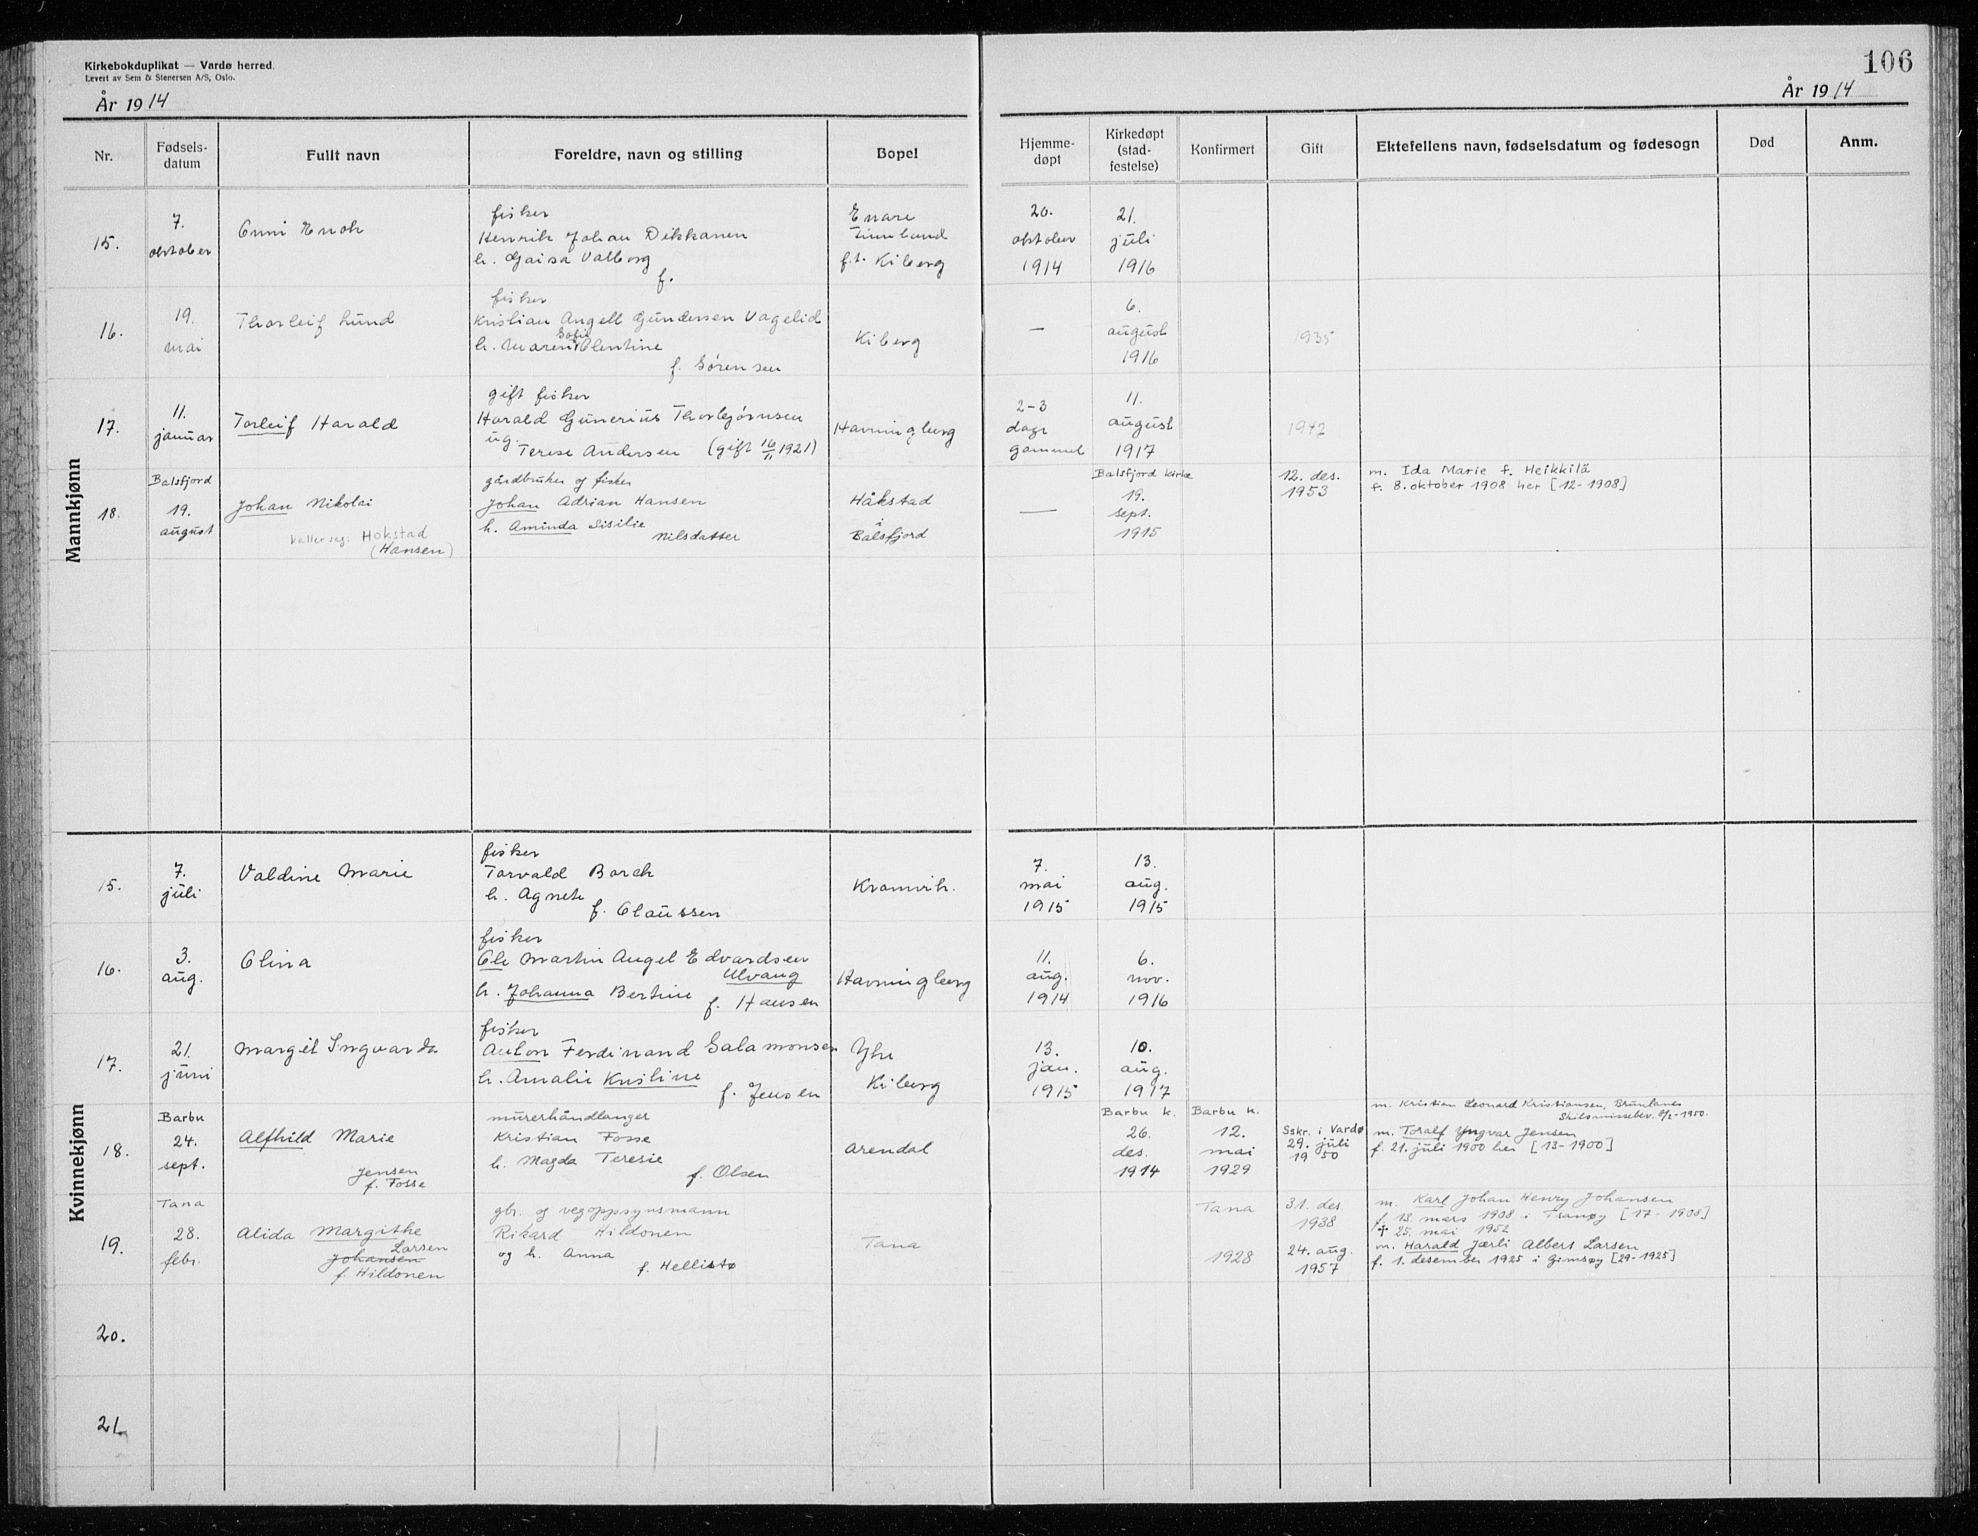 Kirkebokduplikat — Vardø herred.
Levert av Sem & Stenersen A/S, Oslo.
År 1914
106
År 1914
Nr.
Fødsels-
datum
Fullt navn
Foreldre, navn og stilling
Bopel
Hjemme-
døpt
Kirkedøpt
(stad-
festelse)
Konfirmert
Gift
Ektefellens navn, fødselsdatum og fødesogn
Død
Anm.
Mannkjønn
15.
7.
oktober
Onni Enok
fisker
Henrik Johan Dikkanen
h. Gaisa Valborg
f.
Enare
Finnland
f.t. Kiberg
20.
oktober
1914
21.
juli
1916
16.
19.
mai
Thorleif Lund
fisker
Kristian Angell Gundersen Vagelid
Sofie
h. Maren Olentine
f. Sørensen
Kiberg
—
6.
august
1916
1935
17.
11.
januar
Torleif Harald
gift fisker
Harald Gunerius Thorbjørnsen
ug.
Terese Andersen (gift 16/11 1921)
Havningberg
2-3
dage
gammel
11.
august
1917
1942
18.
Balsfjord
19.
august
Johan Nikolai
kaller seg: Hokstad
(Hansen)
gårdbruker og fisker
Johan Adrian Hansen
h. Aminda Sisilie
Nilsdatter
Håkstad
i
Balsfjord
—
Balsfjord kirke
19.
sept.
1915
12. des.
1953
m. Ida Marie f. Heikkilä
f. 8. oktober 1908 her [12-1908]
Kvinnekjønn
15.
7.
juli
Valdine Marie
fisker
Torvald Borch
h. Agnete
f. Claussen
Kramvik.
7.
mai
1915
13.
aug.
1915
16.
3.
aug.
Olina
fisker
Ole Martin Angel Edvardsen
Ulvang
h. Johanna Bertine f. Hansen
Havningberg
11.
aug.
1914
6.
nov.
1916
17.
21.
juni
Margit Ingvarda
fisker
Anton Ferdinand Salamonsen
h. Amalie Kristine
f. Jensen
Ytre
Kiberg
13.
jan.
1915
10.
aug.
1917
18.
Barbu
24.
sept.
Alfhild Marie
Jensen
f. Fosse
murerhåndlanger
Kristian Fosse
h. Magda Teresie
f. Olsen
Arendal
Barbu k.
26.
des.
1914
Barbu k.
12.
mai
1929
Sskr. i Vardø
29. juli
1950
m. Kristian Leonard Kristiansen, Brunlanes
Skilsmissebev. 8/2-1950.
m. Toralf Yngvar Jensen
f. 21. juli 1900 her [13-1900]
19.
Tana
28.
febr.
Alida Margithe
Larsen
Johansen
f. Hildonen
gbr. og vegoppsynsmann
Rikard Hildonen
og h. Anna
f. Hellistø
Tana
Tana
1928
31. des
1938
24. aug.
1957
m. Karl Johan Henry Johansen
f. 13. mars 1908 i Tranøy [17-1908]
✝ 25. mai 1952
m. Harald Jærli Albert Larsen
f. 1. desember 1925 i Gimsøy [29-1925]
20.
21.